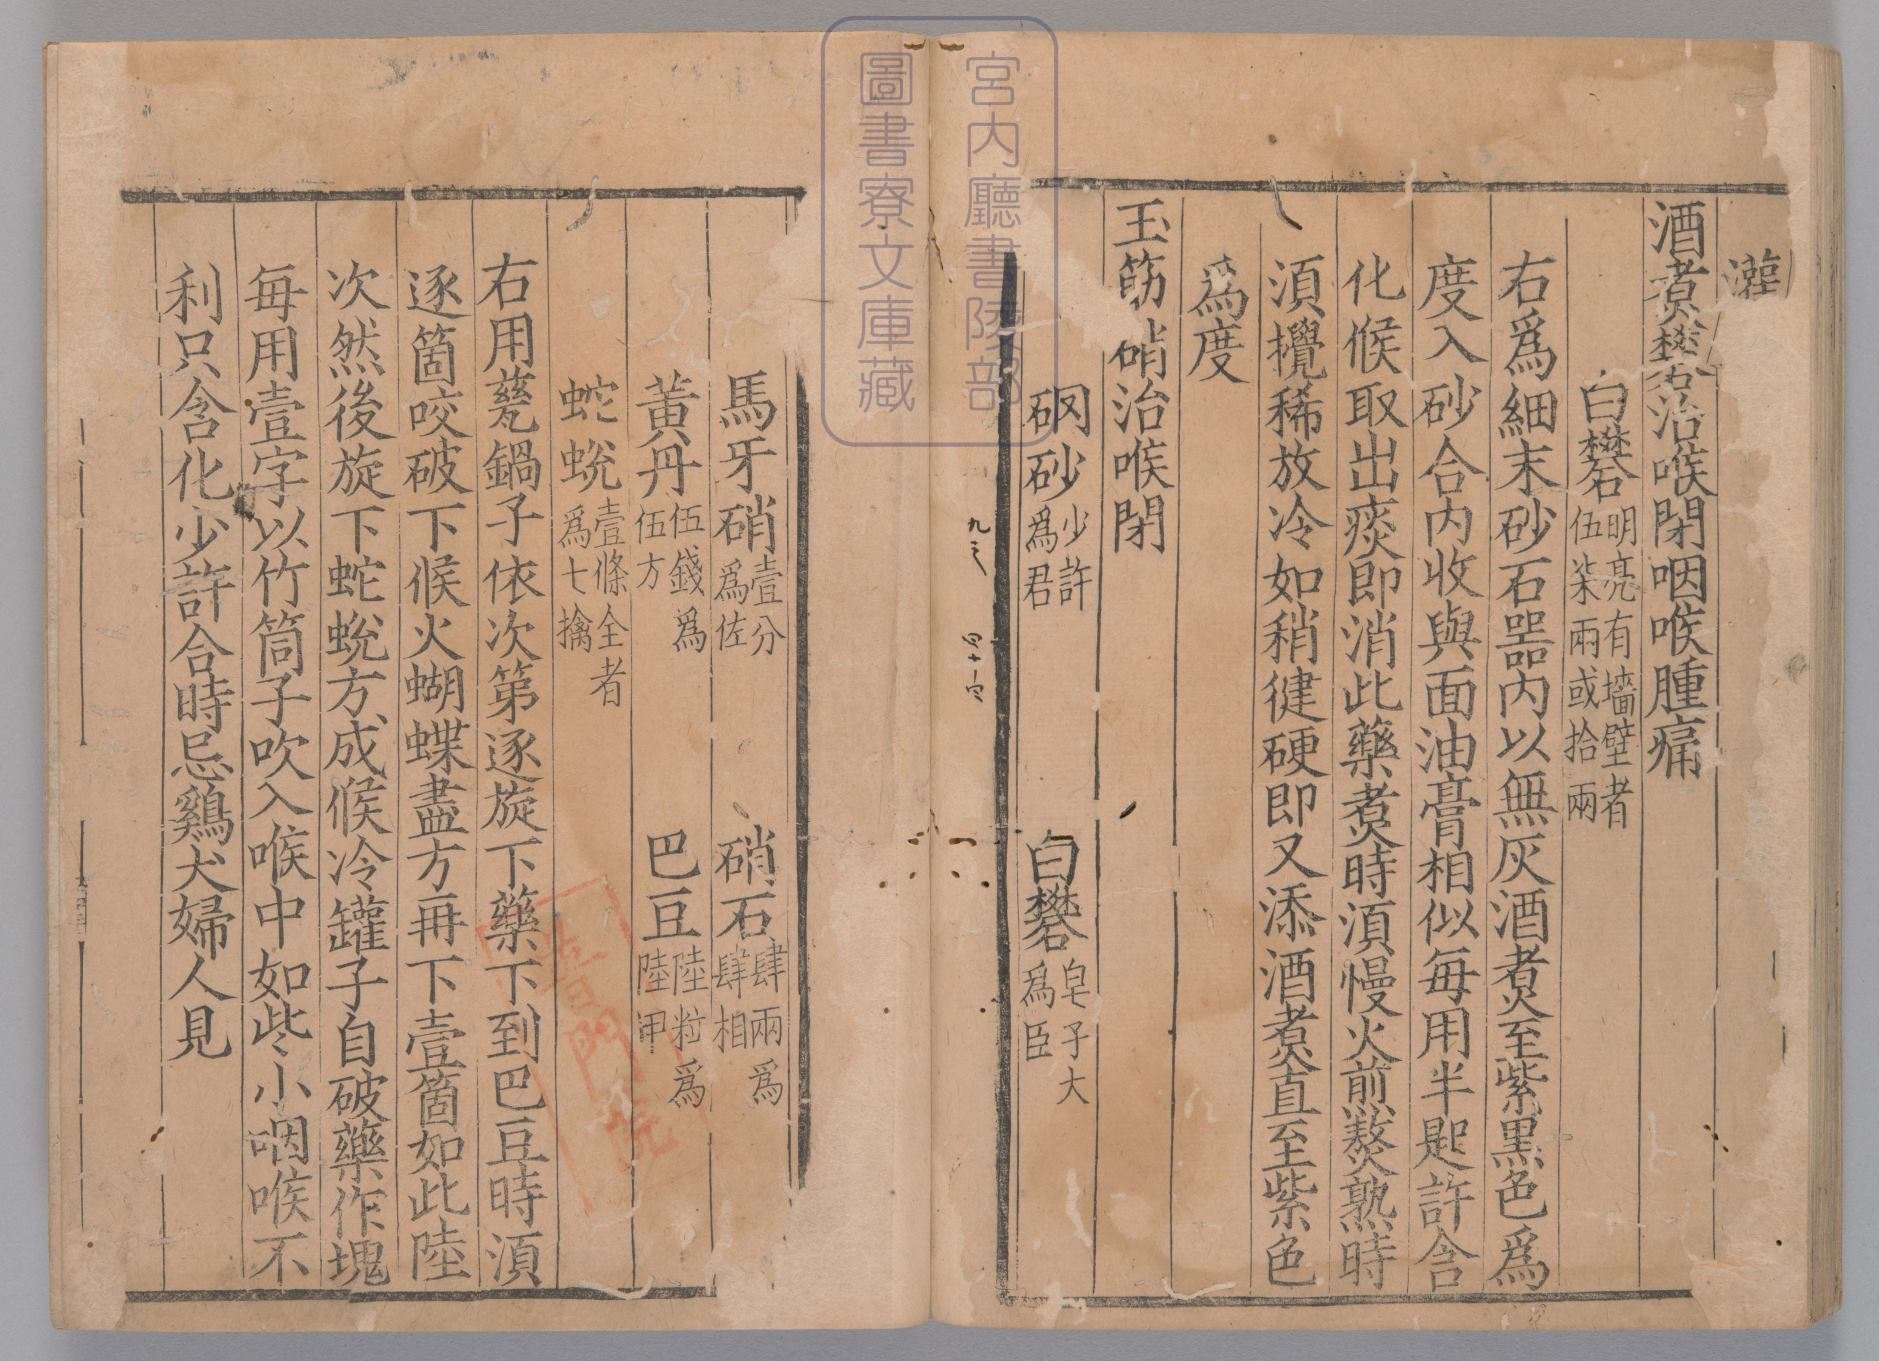 灌
酒煑礬治喉閉咽喉腫痛
白礬明亮有墻壁者伍柒兩或拾兩
右爲細末砂石噐内以無灰酒煑至紫黒色爲
度入砂合内收與面油膏相似每用半匙許含
化候取出痰即消此藥煑時湏慢火前熬熟時
湏攪稀放冷如稍健硬即又添酒煑直至紫色
爲度
玉筯硝治喉閉
硇砂少許爲君 白礬皂子大爲臣
馬牙硝壹分爲佐 硝石肆兩爲肆相
黄丹伍錢爲伍方 巴豆陸粒爲陸甲
蛇蛻壹條全者爲七擒
右用甆鍋子依次第逐旋下藥下到巴豆時湏
逐箇咬破下候火蝴蝶盡方再下壹箇如此陸
次然後旋下蛇蛻方成候冷罐子自破藥作塊
毎用壹字以竹筒子吹入喉中如些小咽喉不
利只含化少許合時忌鷄犬婦人見
宮内廳書陵部
圖書寮文庫藏